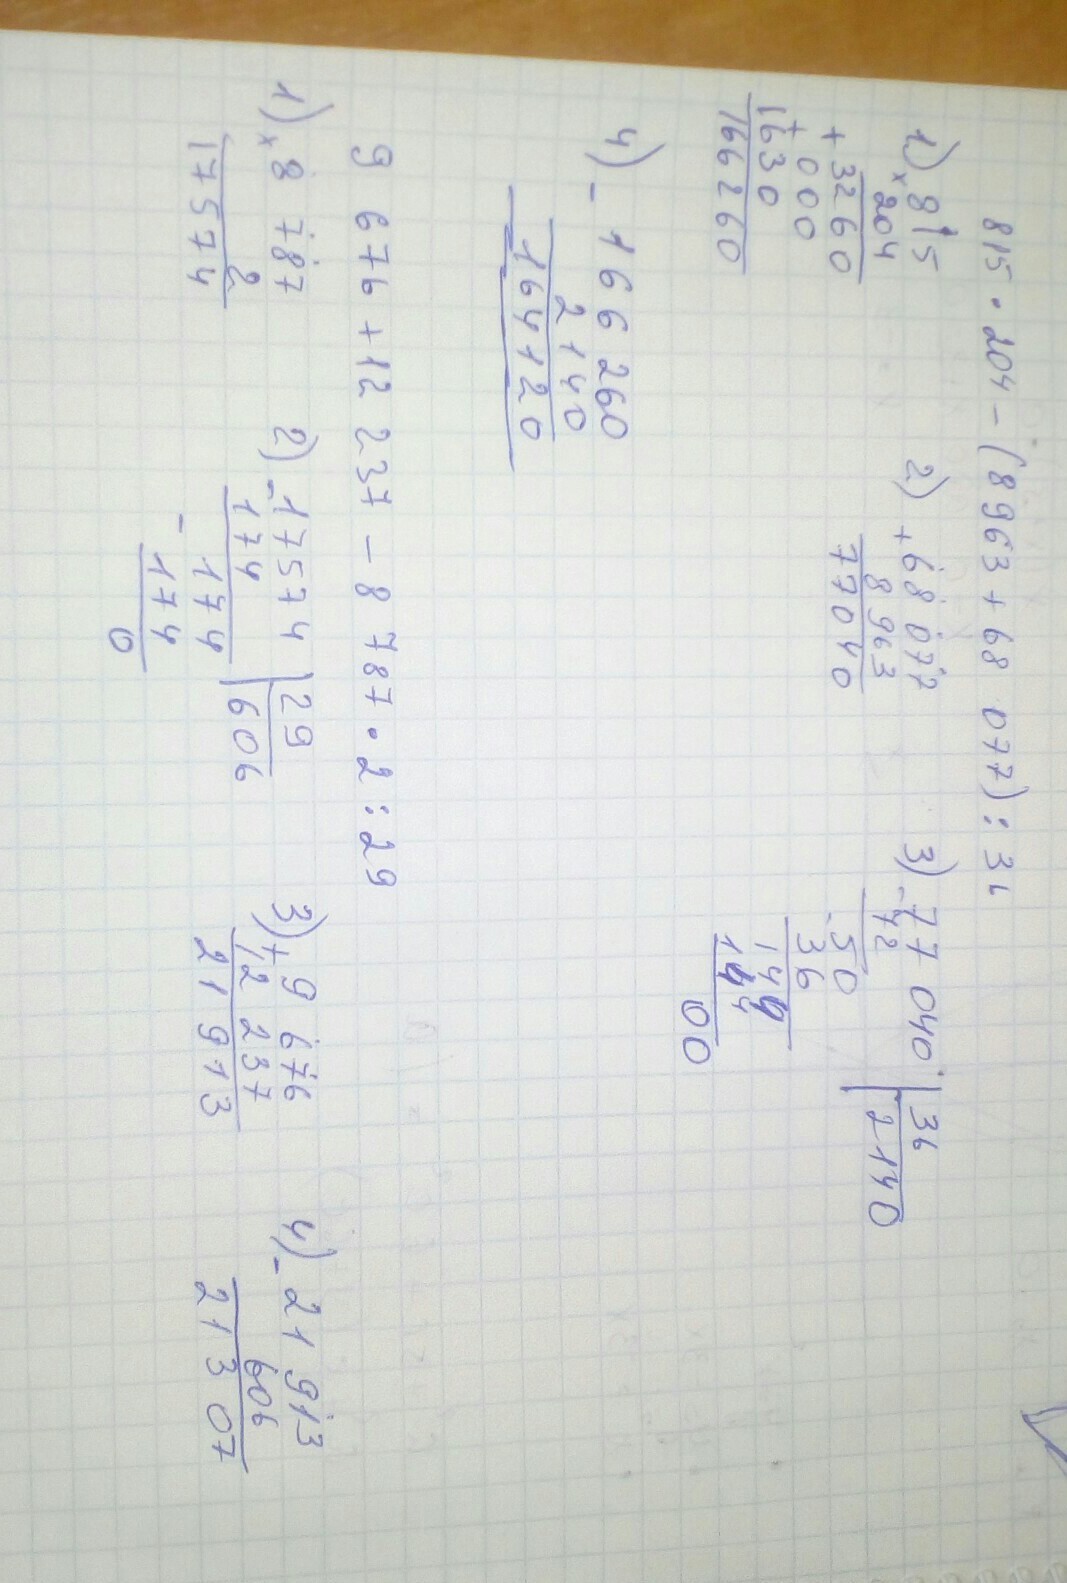 815 · 204 - (8 963 + 68 077) : 36
1) × 815
204
+ 3260
+ 000
1630
166260
2) + 68 077
8 963
77040
3) - 77 040 | 36
72 2140
- 50
36
144
144
00
4) - 166 260
2 140
164120
9 676 + 12 237 - 8 787 · 2 : 29
1) × 8 787
2
17574
2) - 17574 | 29
174 606
- 174
174
0
3) + 9 676
12 237
21 913
4) - 21 913
606
21 307